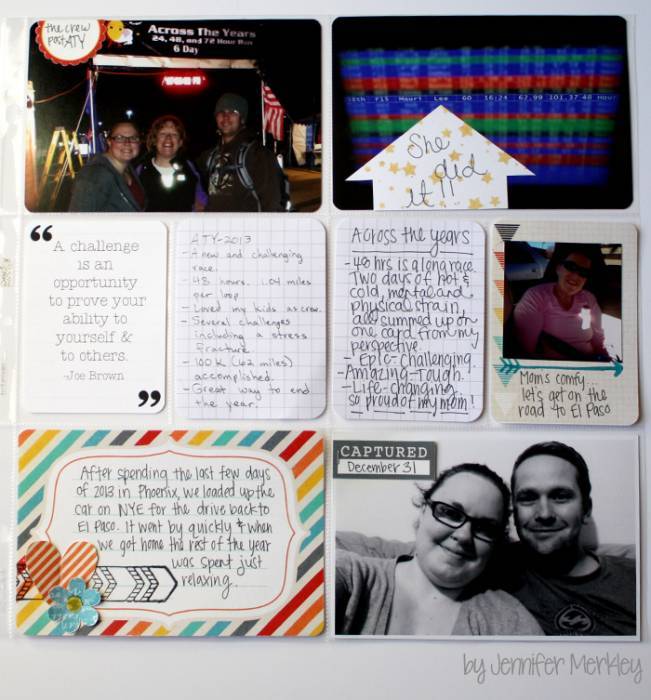 the crew
post ATY
Across The Years
24, 48, and 72 Hour Run
6 Day
Lee GO 16:24 67.99 101.37 48 Hour
She
did
it!!
“
A challenge
is an
opportunity
to prove your
ability to
yourself &
to others.
-Joe Brown
”
ATY-2013
-A new and challenging
race.
-48 hours. 1.04 miles
per loop
-Loved my kids as crew.
-Several challenges
including a stress
fracture.
-100K (62 miles)
accomplished.
-Great way to end
the year.
Across the years
-48 hrs is a long race.
Two days of hot &
cold, mental and
physical strain,
all summed up on
one card from my
perspective.
- Epic-challenging.
-Amazing-Tough.
-Life-changing.
so proud of my mom!
Moms comfy...
let's get on the
road to El Paso
After spending the last few days
of 2013 in Phoenix, we loaded up the
car on NYE for the drive back to
El Paso. It went by quickly & when
we got home the rest of the year
was spent just
relaxing.
CAPTURED
December 31
by Jennifer Merkley